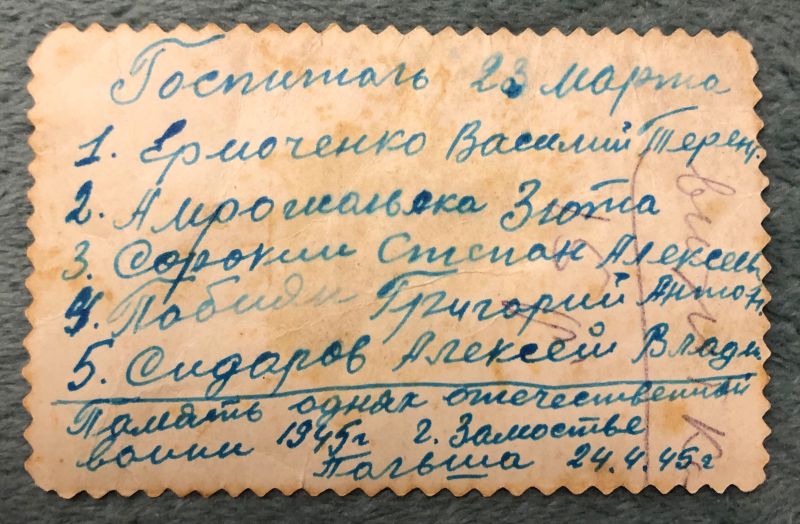 Госпиталь 23 марта
1. Ермоченко Василий Терент.
2. Амрожальска Зюта
3. Сорокин Степан Алексеев
4. Григорий Антон.
5. Сидаров Алексей Влади
Память однях отечественной
воини 1945г г. Замостье
Погьша 24.4.45г